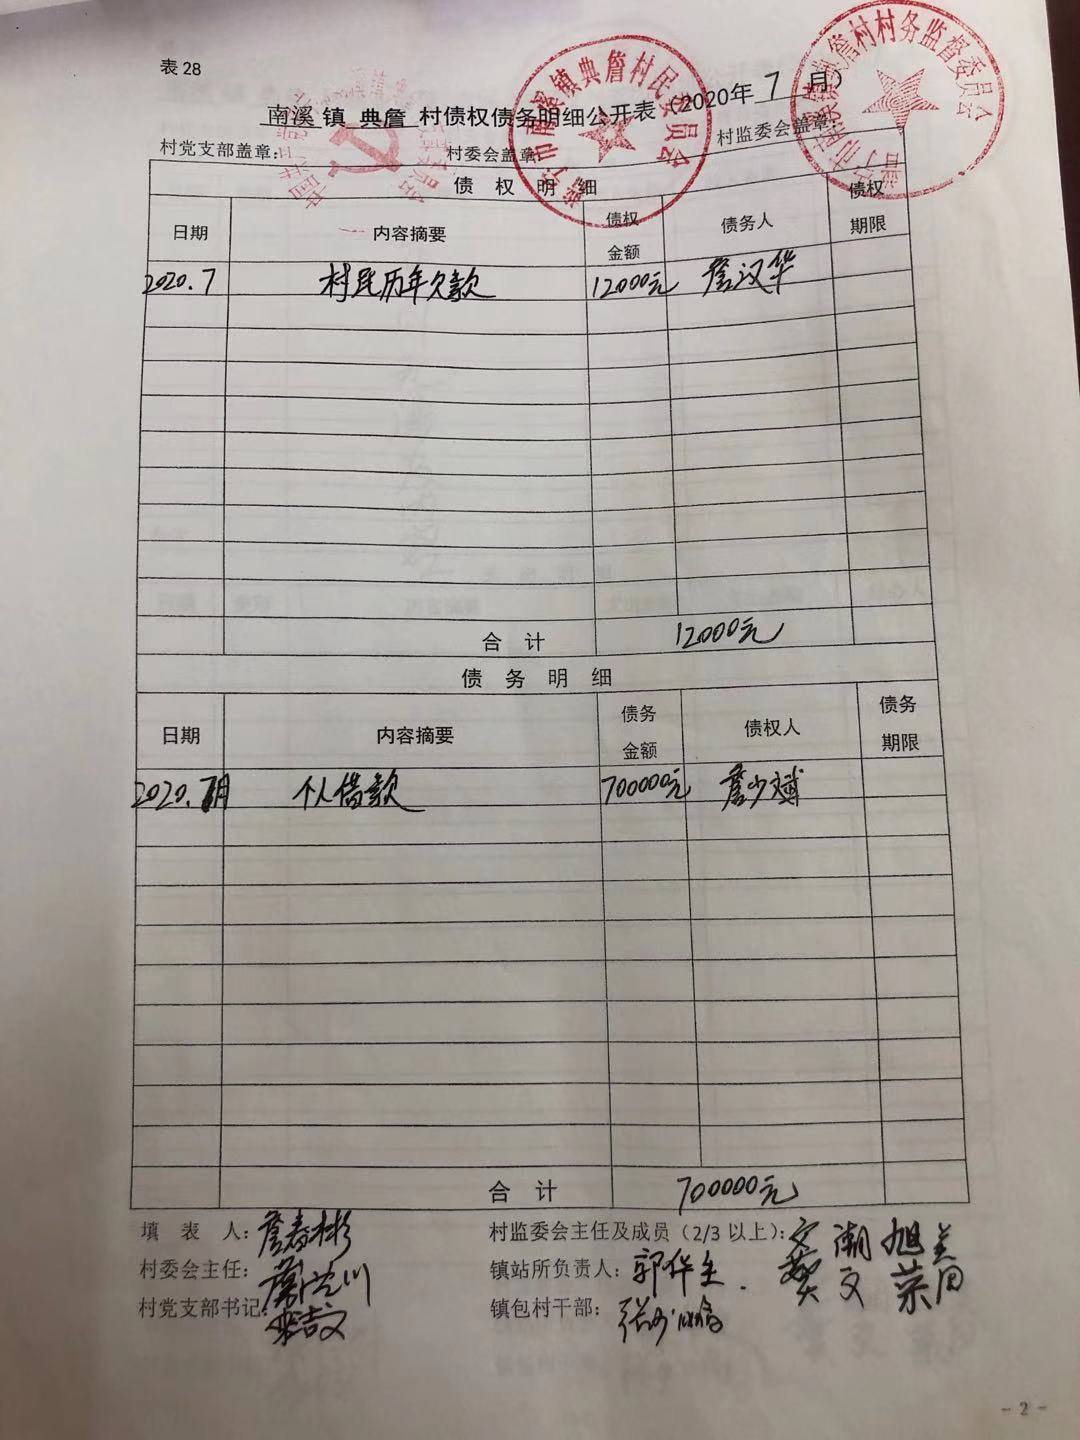 表28
南溪镇 典詹 村债权债务明细公开表（2020年 7 月）
村党支部盖章： 村委会盖章： 村监委会盖章：
市南溪镇典詹村民委员会
典詹村村务监督委员会
债 权 明 细
日期 内容摘要 债权金额 债务人 债权期限
2020.7 村民历年欠款 12000元 詹汉华
合 计 12000元
债 务 明 细
日期 内容摘要 债务金额 债权人 债务期限
2020.7月 个人借款 700000元 詹少斌
合 计 700000元
填 表 人：詹春彬 村监委会主任及成员（2/3以上）：
村委会主任： 镇站所负责人：
村党支部书记： 镇包村干部：
- 2 -